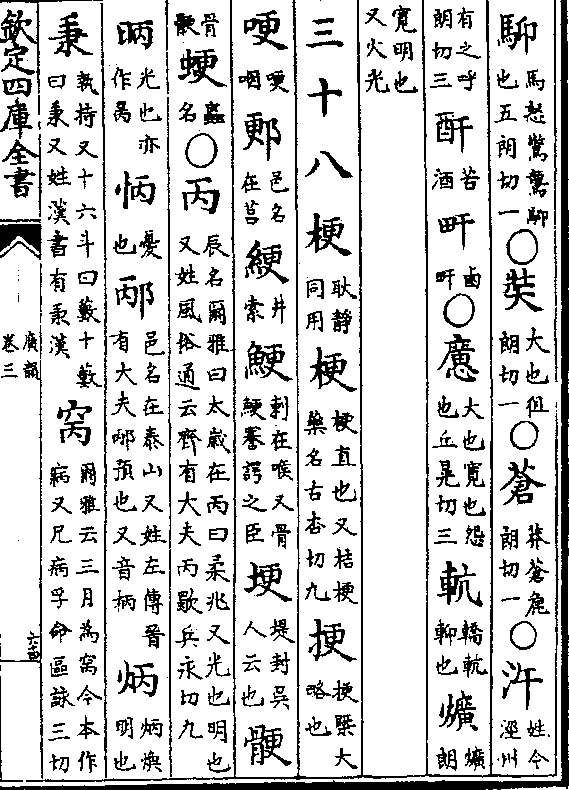 䭹馬怒驚驚䭹也五朗切一○奘大也徂朗切一○蒼莽蒼麁朗切一○汻姓今涇州
有之呼朗切三酐苦酒𤰞鹵𤰞○㢠大也寛也怨也丘晃切三䡉轎䡉䡉也爌爌朗
寛明也又火光
三十八梗耿静同用梗梗直也又桔梗藥名古杏切九挭挭槩大略也
哽哽咽郠邑名在莒綆井索鯁刺在喉又骨鯁謇諤之臣埂堤封吳人云也骾
骨骾䗋蟲名○丙辰名爾雅曰太歲在丙曰柔兆又光也明也又姓風俗通云齊有大夫丙歜兵永切九
昞光也亦作昺怲憂也邴邑名在泰山又姓左傳晉有大夫邴預也又音柄炳炳煥明也
秉執持又十六斗曰籔十籔曰秉又姓漢書有秉漢窉爾雅云三月為窉今本作病又凡病孚命區詠三切
欽定四庫全書
廣韻卷三